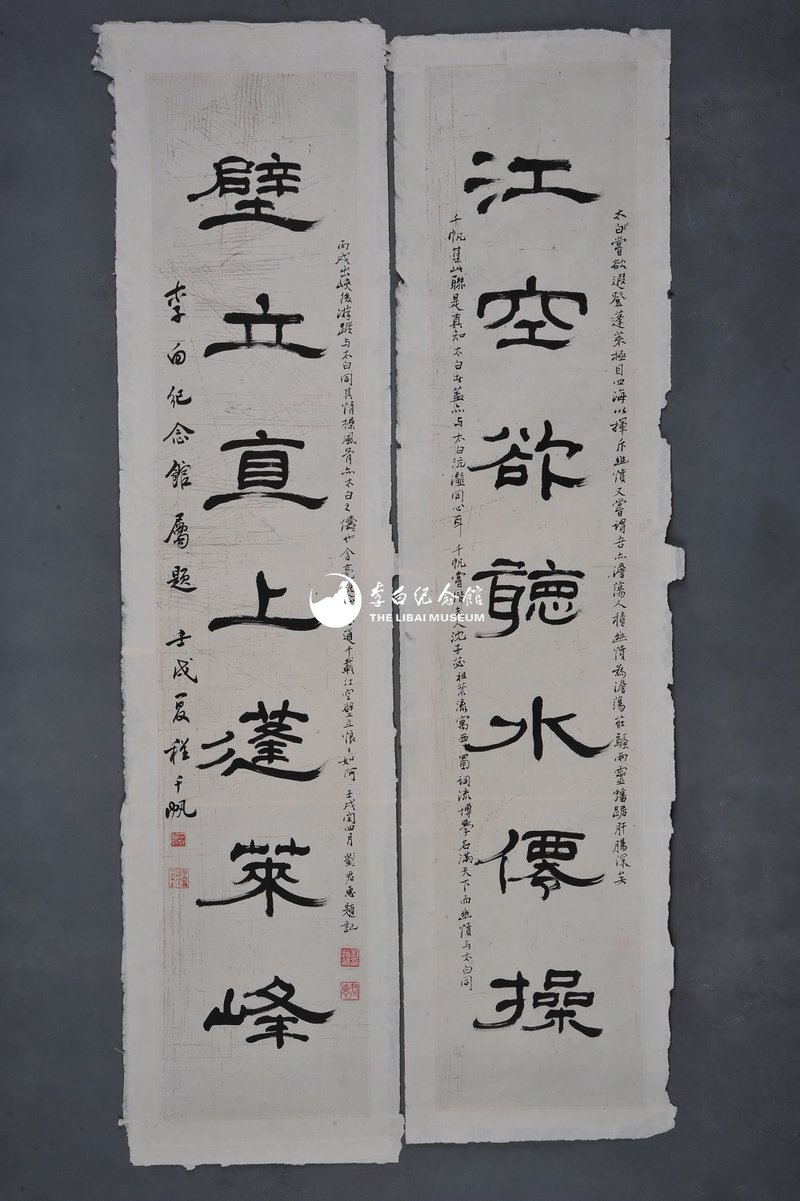 江空欲聽水僊操
太白嘗欲遐登蓬萊極目四海以揮斥幽憤又嘗謂吾亦澹蕩人積幽憤為澹蕩莊騷兩靈蟠踞肝腸深矣
千帆集此聯是真知太白者蓋亦与太白沆瀣同心耳 千帆嘗偕夫人沈子苾祖棻流寓西蜀詞流博學名滿天下而幽憤与太白同
壁立直上蓬萊峰
丙戌出峽後游蹤与太白同其情操風骨亦太白之儔也 道千載江空壁立悵〻如何 壬戌閏四月 劉君惠題記
李白紀念館屬題 壬戌夏 程千帆
李白纪念馆
THE LIBAI MUSEUM